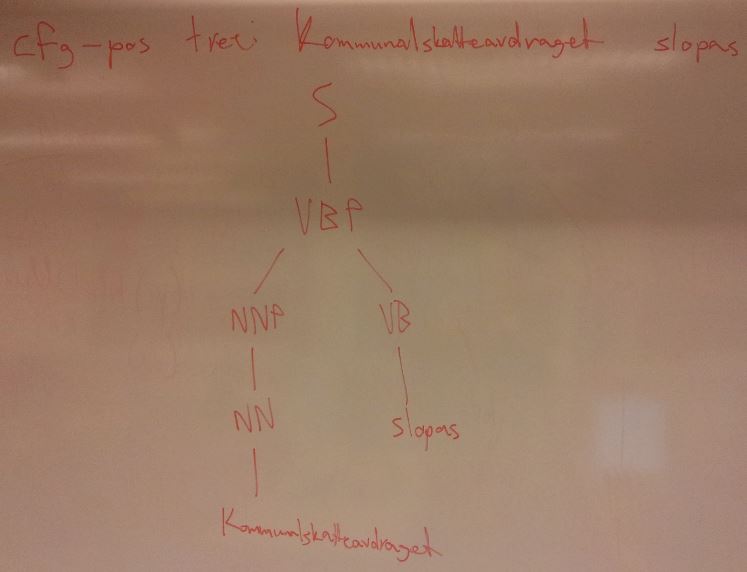 cfg-pos tree: Kommunalskatteavdraget slopas
S
VBP
NNP VB
NN slopas
Kommunalskatteavdraget